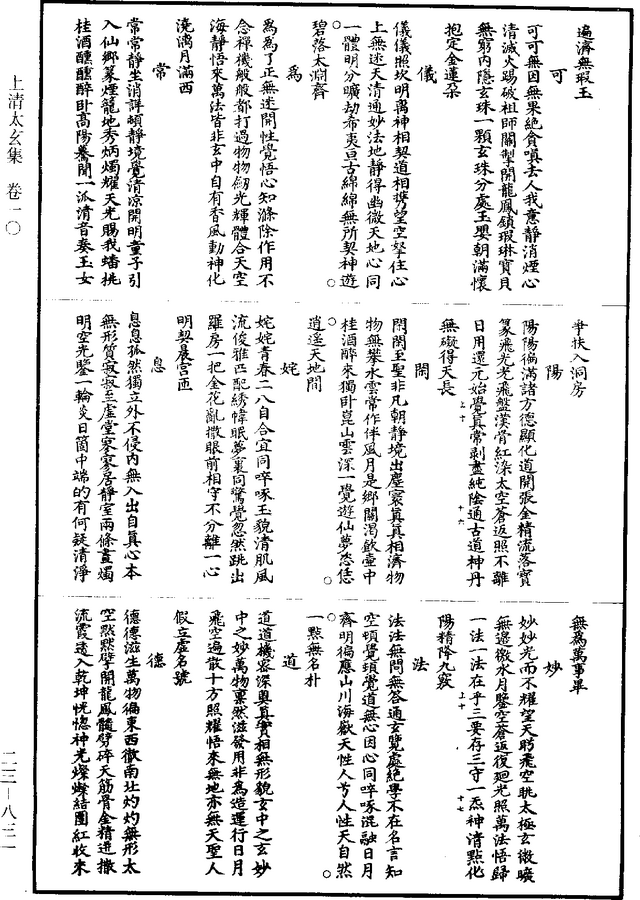 上清太玄集　卷一〇
二三—八三一
遍濟無瑕玉
可
可可無因無果絶貪嗔去人我意靜消煙心
清滅火踢破祖師關掣開龍鳳鎖瑕琳寶貝
無窮內隱玄珠一顆玄珠分處玉嬰朝滿懷
抱定金蓮朶
儀
儀儀照坎明离神相契道相携望空拏住心
上無迷天清通妙法地靜得幽微天地心同
一體明分曠劫希夷亘古綿綿無所契神遊
碧落太淵齊
為
為為了正無迷開性覺悟心知滌除作用不
念禪機般般都打過物物劒光輝體合天空
海靜悟來萬法皆非玄中自有香風動神化
澆漓月滿西
常
常常靜坐消詳頓靜境覺清凉開明童子引
入仙鄉篆煙籠地秀炳燭耀天光賜我蟠桃
桂酒醺醺醉卧高陽養閒一派清音奏玉女
爭扶入洞房
陽
陽陽徧滿諸方德顯化道開張金精流落寶
篆飛光光飛盤漢脊紅深太空蒼返照不離
日用還元始覺真常剥盡純陰通古道神丹
無礙得天長
閒
閒閒王聖非凡朝靜境出塵寰真真相濟物
物無攀水雲常作伴風月是鄉關渴飲壷中
桂酒醉來獨卧崑山雲深一覺遊仙夢恣恁
逍遥天地間
姹
姹姹青春二八自合宜同啐啄玉貌清肌風
流俊雅匹配綉幃眠夢裏同驚覺忽然跳出
羅房一把金花亂撒眼前相守不分離一心
明契晨宮匝
息
息息孤然獨立外不侵內無入出自真心本
無形質寂寂至虛堂寥寥居靜室兩條畫燭
明空光鑒一輪炎日箇中端的有何疑清淨
無為萬事畢
妙
妙妙光而不耀望天眄飛空眺太極玄微曠
無邊微水月鑒空蒼返復廻光照萬法悟歸
一法一法在乎三要存三守一炁神清點化
陽精降九竅
法
法法無問無答通玄覽處絶學不在名言知
空頓覺頭覺道無心因心同啐啄混融日月
齊明徧應山川海嶽天性人兮人性天自然
一點無名朴
道
道道機密深奧真實相無形貌玄中之玄妙
中之妙萬物稟然滋發用非為造運行日月
飛空遍散十方照耀悟來無地亦無天聖人
假立虛名號
德
德德滋生萬物徧東西徹南北灼灼無形太
空㸌㸌擘開龍鳳髓劈碎天筋骨金精迸撒
流霞透入乾坤恍惚神光燦燦結團紅收來